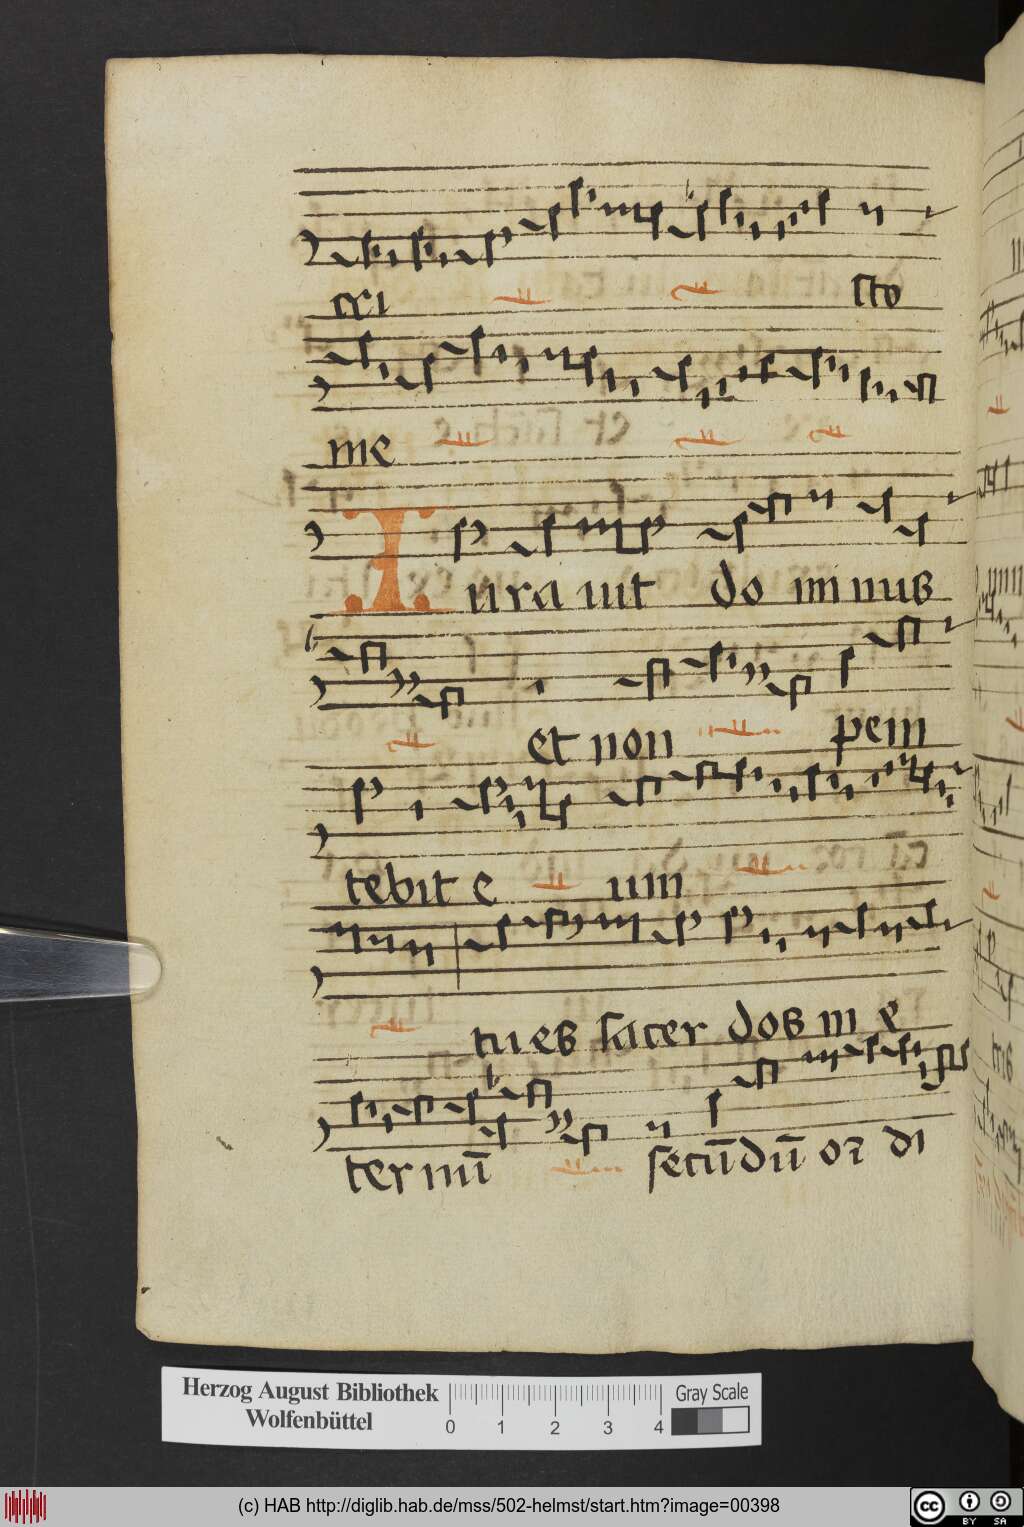 cri sto
me
Iura uit do mi nus
et non peni
tebit e um
tu es sacer dos in e
ter nū secūdū or di
Herzog August Bibliothek
Wolfenbüttel
0 1 2 3 4
Gray Scale
(c) HAB http://diglib.hab.de/mss/502-helmst/start.htm?image=00398
cc BY SA